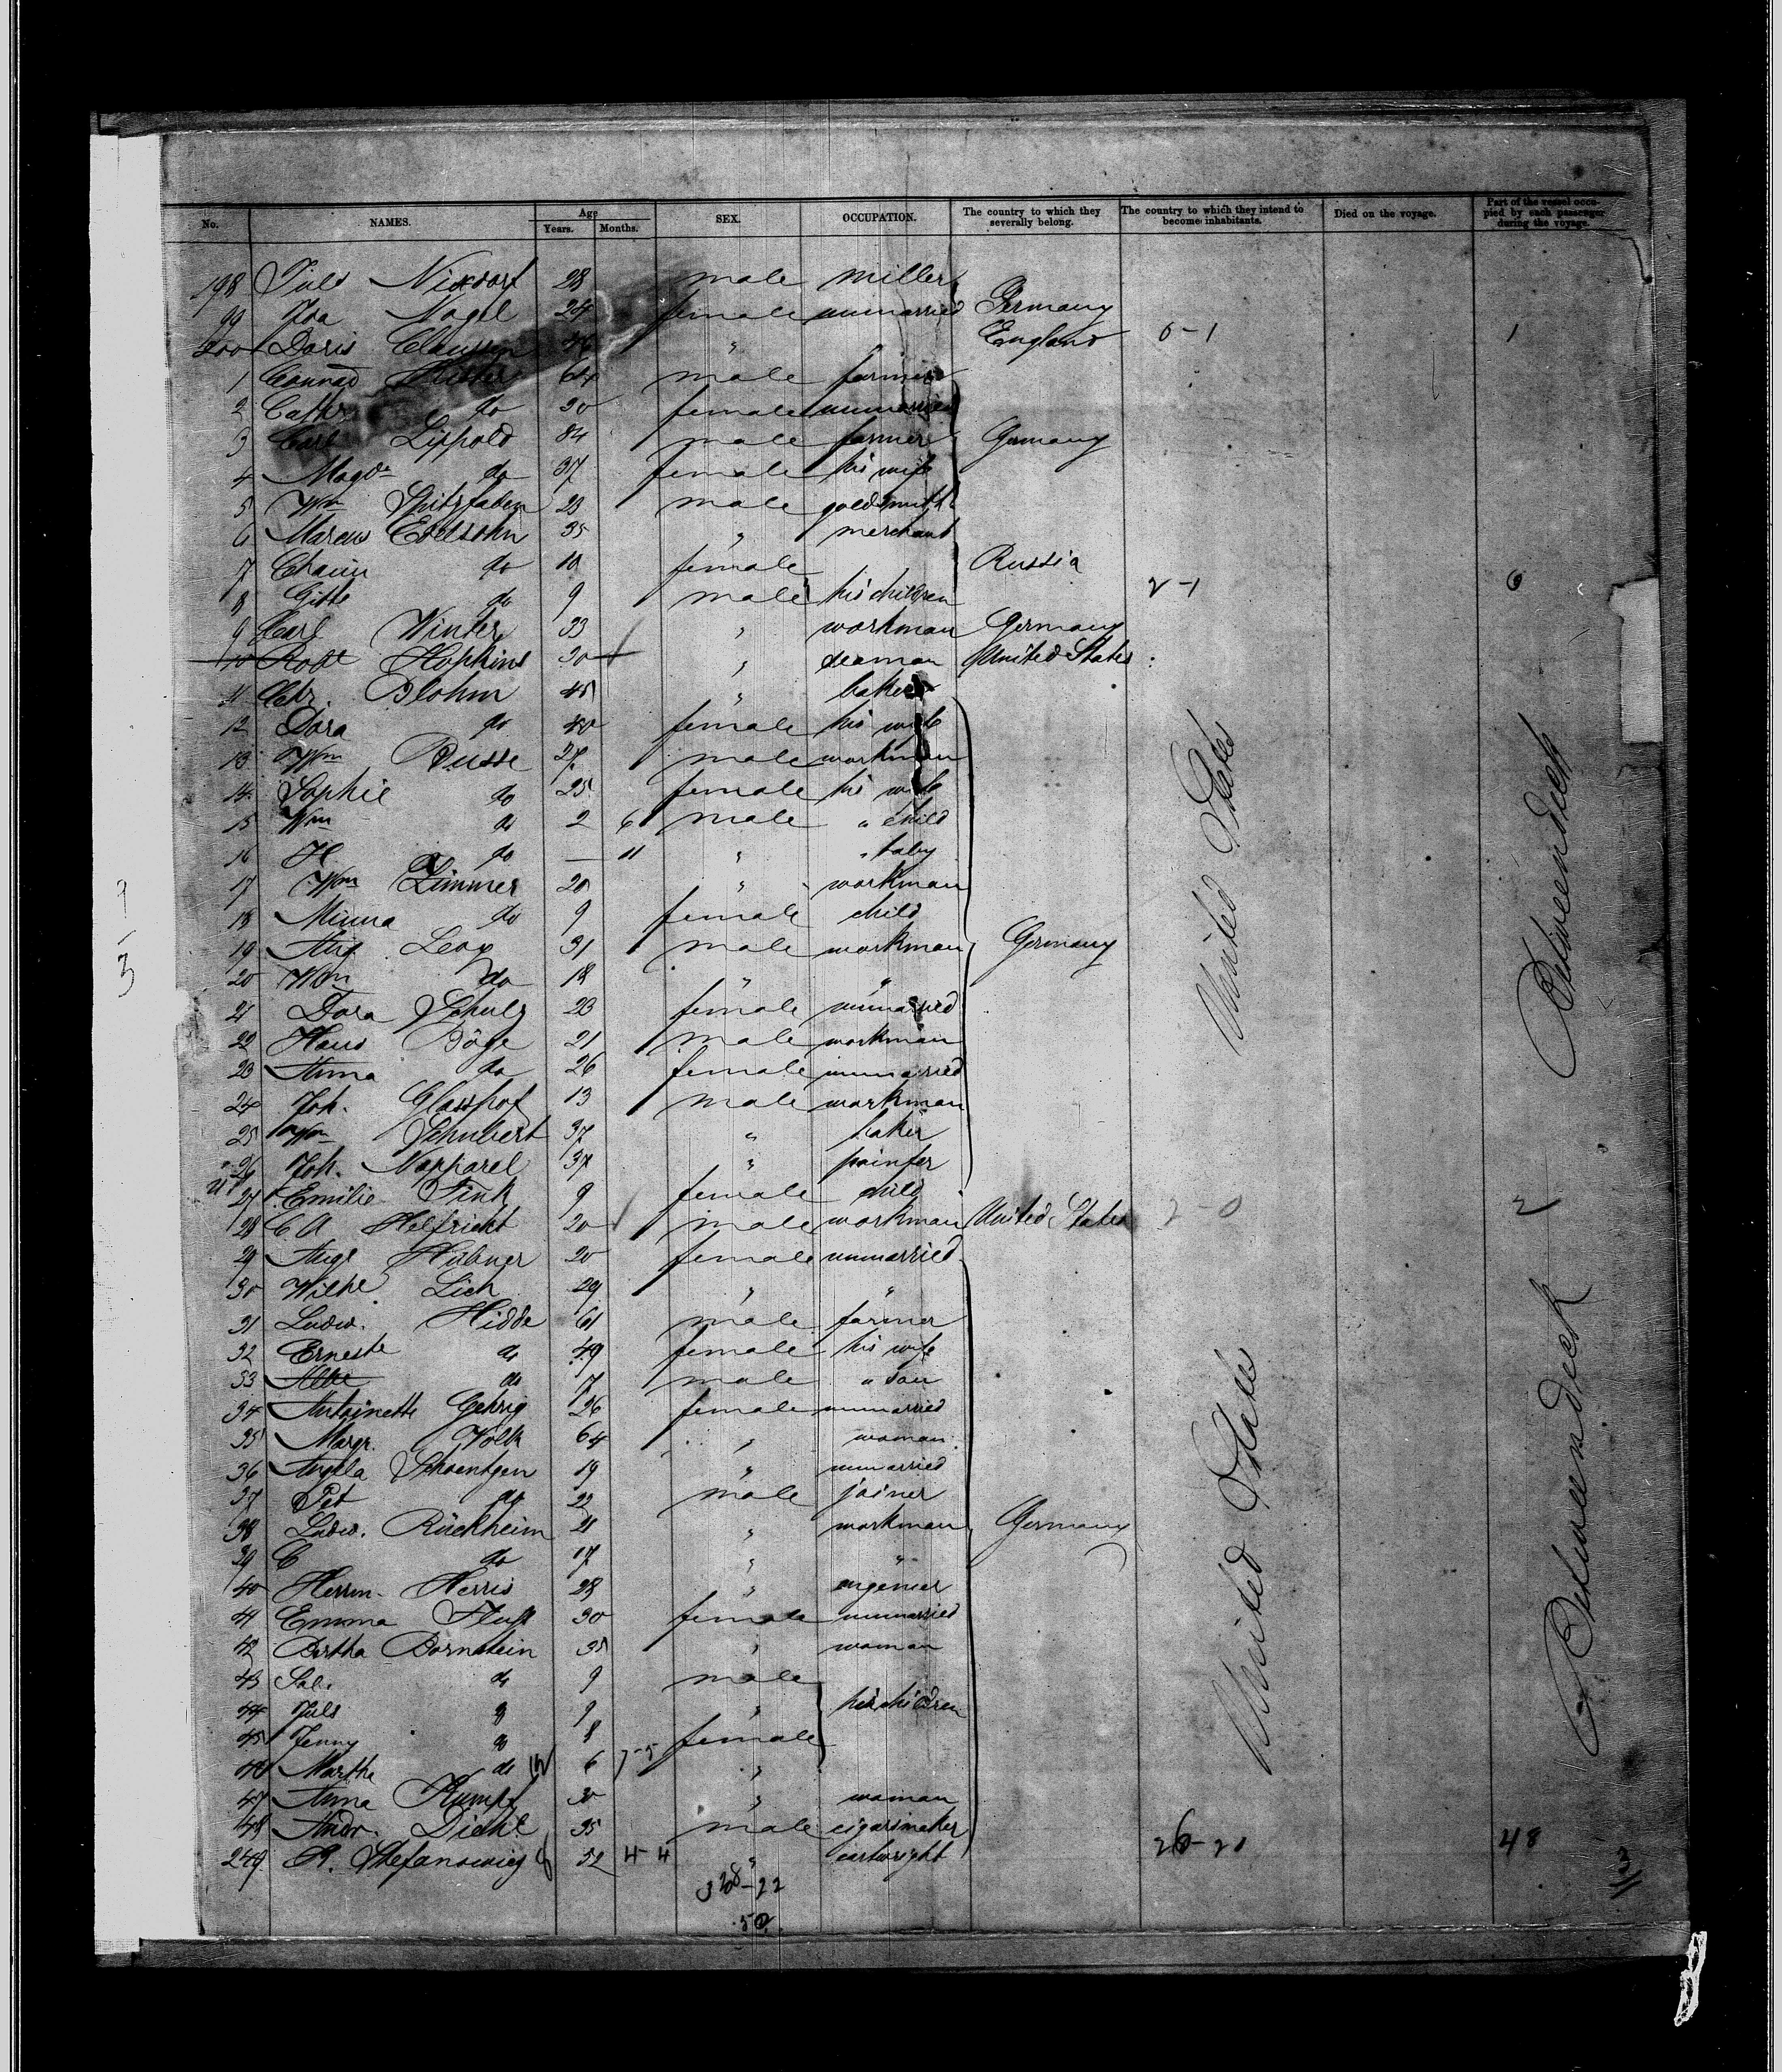 No. NAMES. Age Years. Months. SEX. OCCUPATION. The country to which they severally belong. The country to which they intend to become inhabitants. Died on the voyage. Part of the vessel occupied by each passenger during the voyage.
198 Juls Nixdorf 28 male miller
99 Ida Nagel 24 female unmarried Germany
200 Doris Clausen 46 " " England 0-1 1
1 Conrad 64 male farmer
2 Cath. do 30 female unmarried
3 Carl Lippold 84 male farmer Germany
4 Magda do 37 female his wife
5 Wm Spitzfaden 23 male goldsmith
6 Marcus Edelsohn 35 " merchant
7 Chaim do 10 female Russia
8 Gitte do 9 male his children 2-1 6
9 Carl Winter 33 " workman Germany
10 Robt Hopkins 30 " seaman United States
11 Chr. Blohm 45 " baker
12 Dora do 40 female his wife
13 Wm Busse 27 male workman
14 Sophie do 25 female his wife
15 Wm do 2 6 male " child
16 H do — 11 " " baby
17 Wm Zimmer 20 " workman
18 Minna do 9 female child
19 Aug. Leop 31 male workman Germany
20 Wm do 18 " "
21 Dora Schulz 23 female unmarried
22 Hans Böge 21 male workman
23 Anna do 26 female unmarried
24 Joh. Glasshof 13 male workman
25 Wm Schubert 37 " baker
26 Joh. Napparel 37 " painter
27 Emilie Fink 9 female child
28 C A Helfricht 20 male workman United States 2-0 2
29 Auge Hübner 20 female unmarried
30 Wilhe Lich 29 " "
31 Ludw. Hidde 61 male farmer
32 Erneste do 49 female his wife
33 Albe do 7 male " son
34 Antoinette Gehrig 26 female unmarried
35 Margr. Volk 64 " woman
36 Angela Schoentgen 19 " unmarried
37 Pet do 22 male joiner
38 Ludw. Rückheim 21 " workman Germany
39 C do 17 " "
40 Herrm. Herris 28 " engenier
41 Emma 30 female unmarried
42 Bertha Bornstein 35 " woman
43 Sal. do 9 male
44 Juls do 9 " her children
45 Jenny do 8 female
46 Martha do 6 "
47 Anna Kumpf 30 " woman
48 Andr. Diehl 35 male cigarsmaker
249 R. Stefanowicz 52 4-4 " cartwright 26-20 48
28-22
50
United States
United States
Betweendeck
Betweendeck